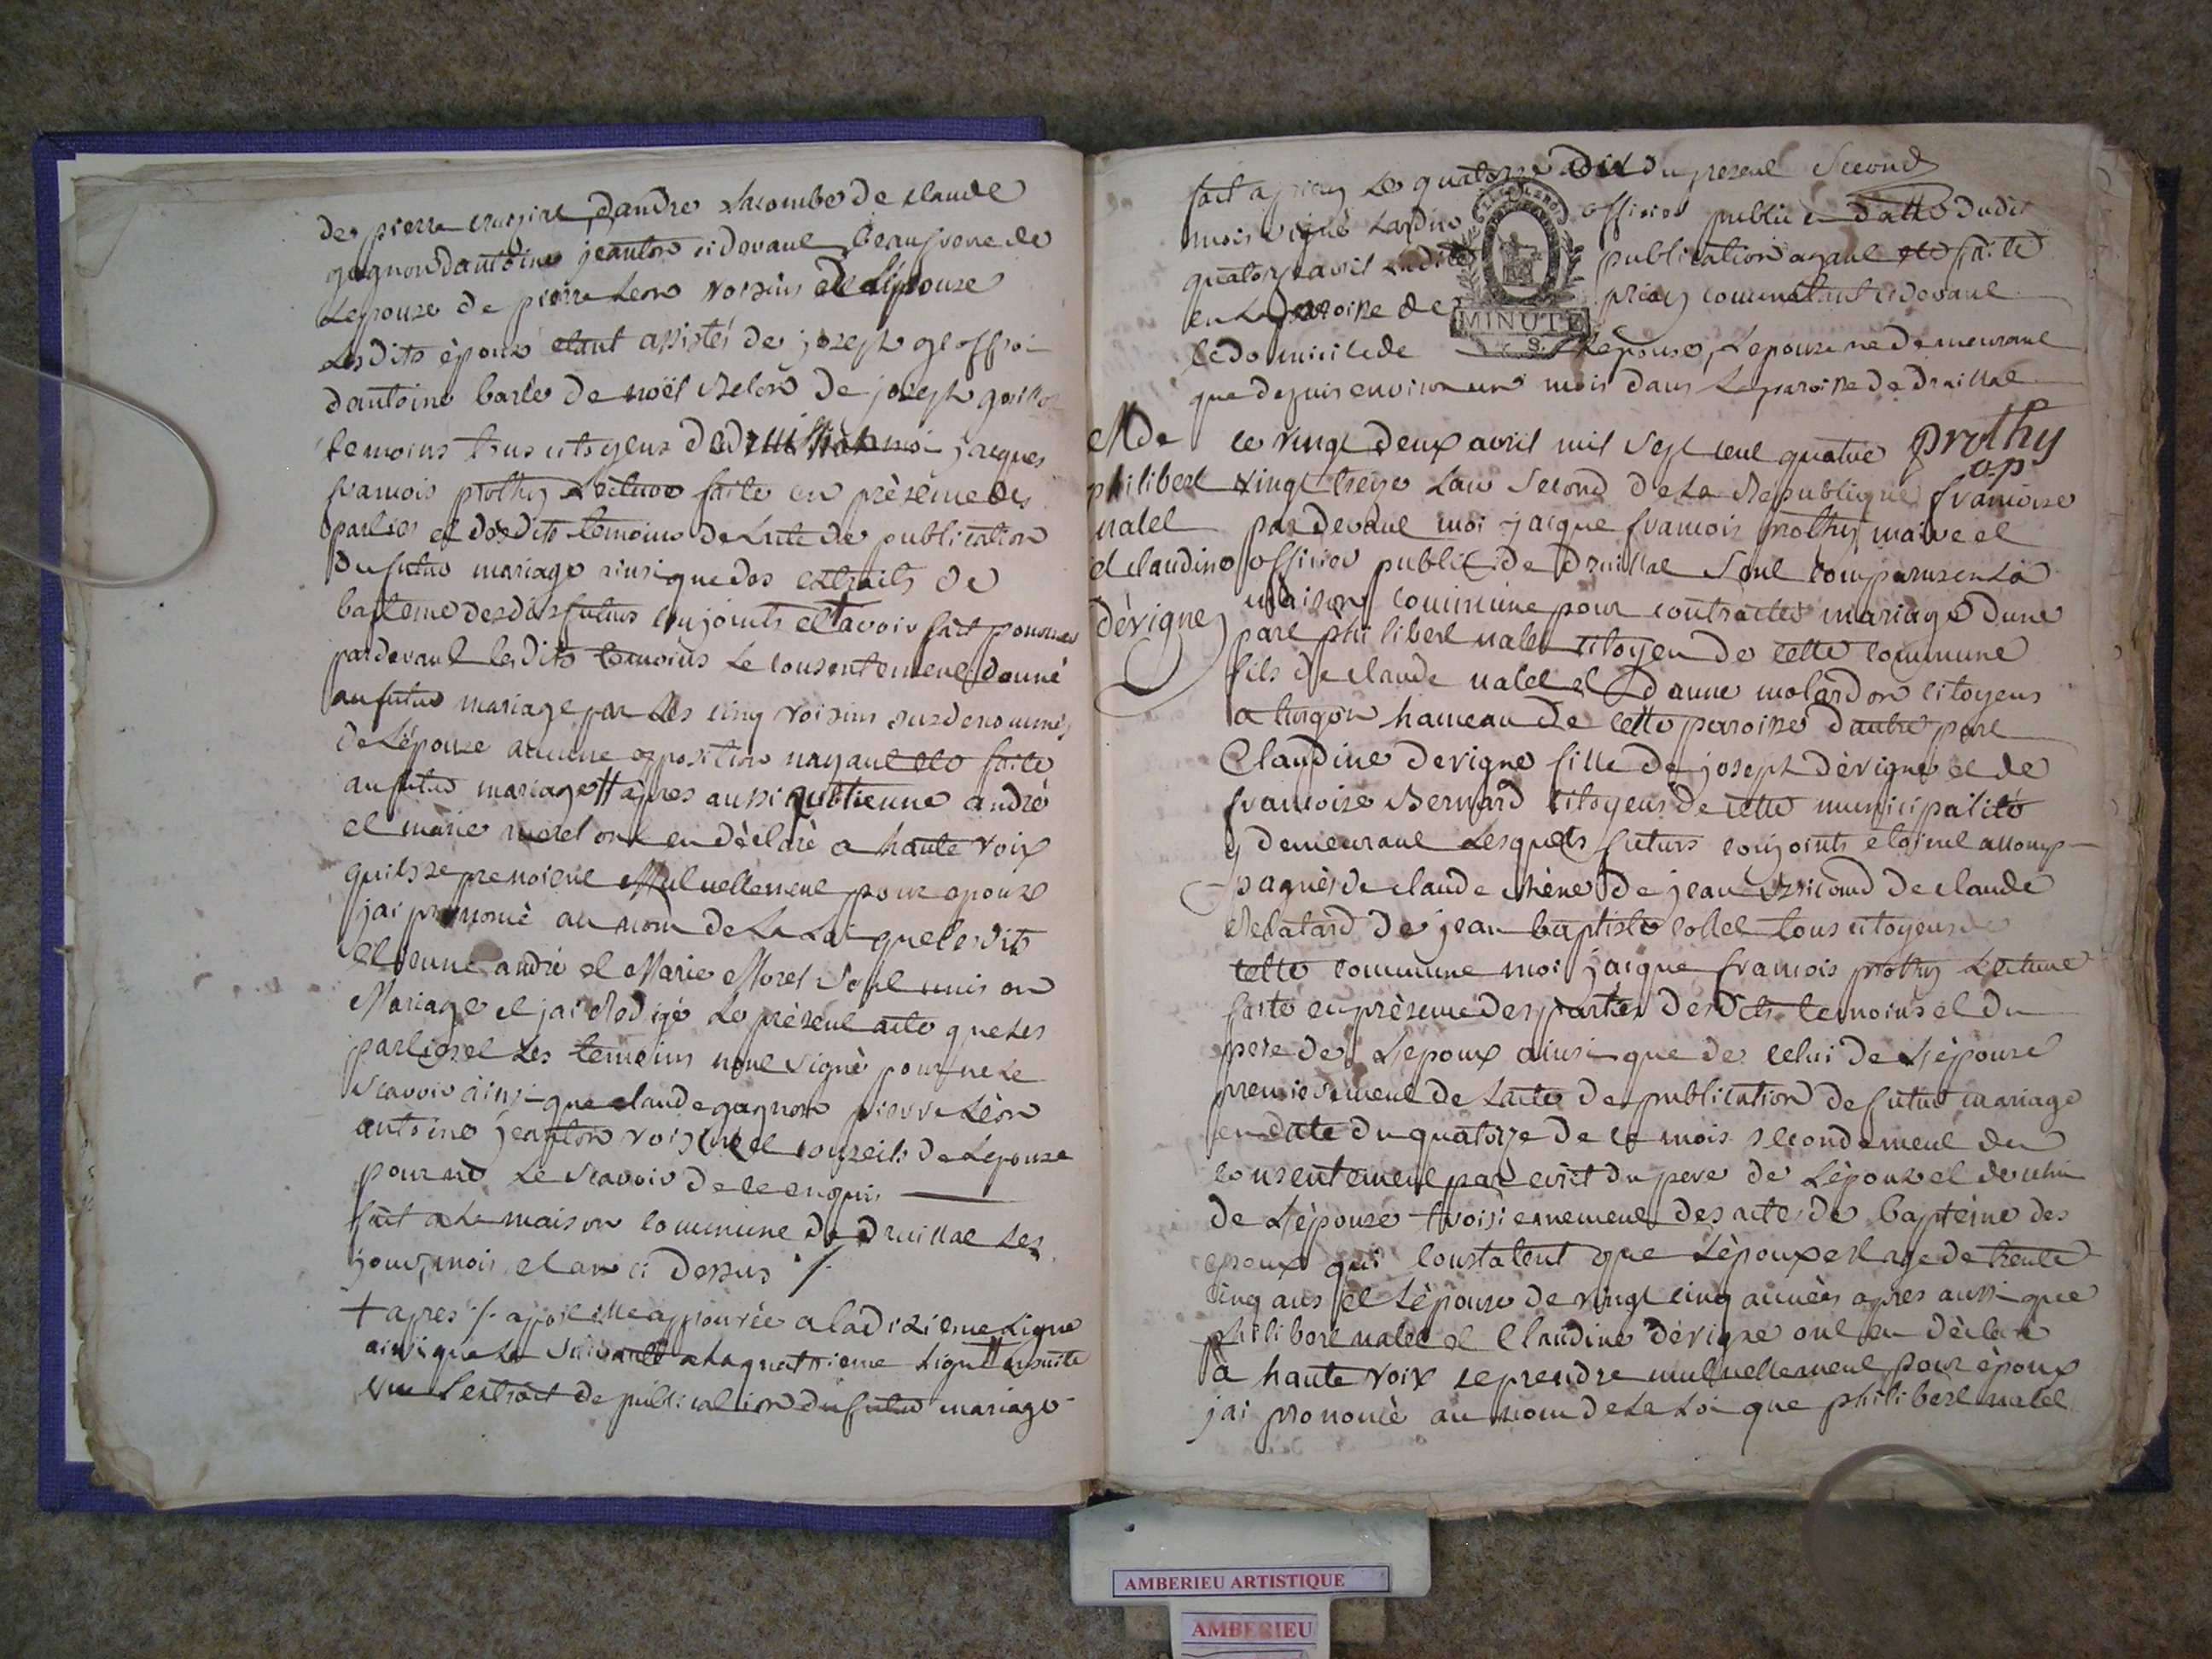 de pierre Lacombe de claude
gagnon dantoine jeanton cidevant beaufrere de
Lepouse de pierre Leon voisins de Lépouse
Lesdits époux etant assistés de joseph geoffroi
dantoine barle de noël Melon de joseph
temoins tous citoyens de druillat moi jacques
francois prothy Lecture faite en présence des
parties et desdits temoins de Lacte de publication
du futur mariage ainsi que des extraits de
bapteme desdits futurs conjoints et avoir fait
pardevant lesdits temoins Le consentement donné
au futur mariage par Les cinq voisins susdenommés
de Lépouse aucune opposition nayant eté faite
au futur mariage # apres aussi qu'etienne andré
et marie morel ont eu dèclaré a haute voix
quils se prenoient Mutuellement pour epoux
jai prononcé au nom de La Loi que lesdits
Etienne andré et Marie Morel sont unis en
Mariage et jai Redigé Le prèsent acte que Les
parties et Les temoins nont signé pour ne Le
scavoir ainsi que claude gagnon pierre Lèon
antoine jeanton voisins et conseils de Lepouse
pour ne Le scavoir de ce enquis
fait a La maison commune de druillat Les
jour, mois et an ci dessus ./.
+ apres ./. apostille approuvée a la dixieme Ligne
ainsi que La suivante a La quatrieme Ligne # ensuite
vu L'extrait de publication du futur mariage
fait a priay Le quatorze dudit du present Second
mois signé Lardin officier public en datte dudit
quatorze avril Ladite publication ayant eté faite
en La paroisse de priay comme etant cidevant
le domicile de Lépouse, Lepouse ne demeurant
que depuis environ un mois dans La paroisse de druillat
prothy
o.p
M de
philibert
nalet
et claudine
dèvigne
ce vingt deux avril mil sept cent quatre
vingt treize Lan Second de La Republique francoise
par devant moi jacque francois prothy maire et
officier public de druillat sont comparus en La
maison commune pour contracter mariage dune
part philibert nalet citoyen de cette commune
fils de claude nalet et danne molardon citoyens
a turgon hameau de cette paroisse dautre part
Claudine devigne fille de joseph dèvigne et de
francoise Bernard citoyens de cette municipalité
y demeurant Lesquels futurs conjoints etoient accom-
pagnés de claude chêne de jean de claude
Relatard de jean baptiste collet tous citoyens de
cette commune moi jacque francois prothy Lecture
faite en prèsence des parties desdits temoins et du
pere de Lepoux ainsi que de celui de Lépouse
premierement de Lacte de publication de futur mariage
en date du quatorze de ce mois secondement du
consentement par ecrit du pere de Lépoux et de celui
de Lépouse troisiemement des actes de baptème des
epoux qui constatent que Lépoux est agé de trente
cinq ans et Lépouse de vingt cinq années apres aussi que
philibert nalet et Claudine dèvigne ont eu dèclaré
a haute voix se prendre mutuellement pour époux
jai prononcé au nom de La Loi que philibert nalet
MINUTE
AMBERIEU ARTISTIQUE
AMBERIEU